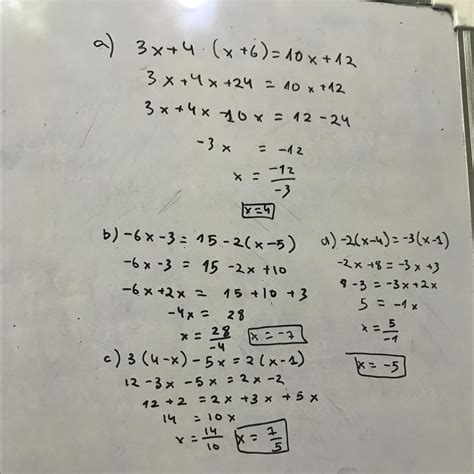 a) 3x+4·(x+6)=10x+12
3x+4x+24 = 10x+12
3x+4x-10x = 12-24
-3x = -12
x = -12/-3
x=4
b) -6x-3 = 15-2(x-5)
-6x-3 = 15-2x+10
-6x+2x = 15+10+3
-4x = 28
x = 28/-4
x=-7
c) 3(4-x)-5x=2(x-1)
12-3x-5x=2x-2
12+2 = 2x+3x+5x
14 = 10x
x = 14/10
x = 7/5
d) -2(x-4)=-3(x-1)
-2x+8=-3x+3
8-3=-3x+2x
5 = -1x
x = 5/-1
x = -5